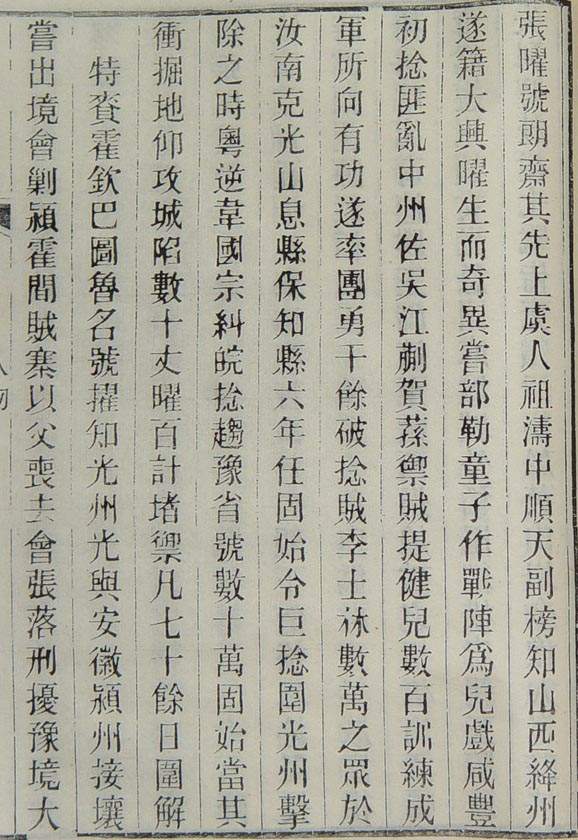 張曜號朗齋其先上虞人祖濤中順天副榜知山西絳州
遂籍大興曜生而奇異嘗部勒童子作戰陣爲兒戲咸豐
初捻匪亂中州佐吳江蒯賀蓀禦賊提健兒數百訓練成
軍所向有功遂率團勇千餘破捻賊李士林數萬之眾於
汝南克光山息縣保知縣六年任固始令巨捻圍光州擊
除之時粵逆韋國宗糾皖捻趨豫省號數十萬固始當其
衝掘地仰攻城陷數十丈曜百計堵禦凡七十餘日圍解
特賚霍欽巴圖魯名號擢知光州光與安徽潁州接壤
嘗出境會剿潁霍間賊寨以父喪去會張落刑擾豫境大